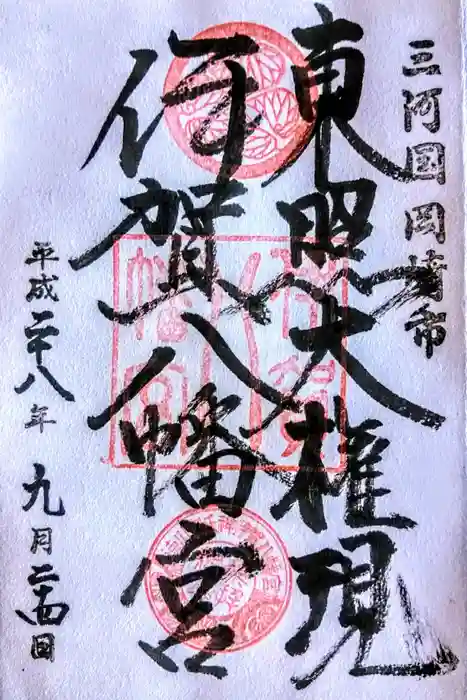 三河国岡崎市
東照大権現
伊賀八幡宮
平成二十八年九月二十四日
伊賀
八
幡宮